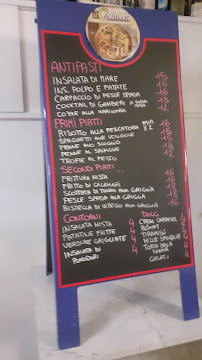 ANTIPASTI
INSALATA DI MARE 15
INS. POLPO E PATATE 15
CARPACCIO DI PESCE SPADA 16
COCKTAIL DI GAMBERI IN SALSA ROSA 13
COZZE ALLA MARINARA 12
PRIMI PIATTI
RISOTTO ALLA PESCATORA MIN X 2 16
SPAGHETTI ALLE VONGOLE 15
PENNE ALLO SCOGLIO
PENNE AL SALMONE
TROFIE AL PESTO
SECONDI PIATTI
FRITTURA MISTA 16
FRITTO DI CALAMARI 16
ALLA GRIGLIA
PESCE SPADA ALLA GRIGLIA
BISTECCA DI VITELLO ALLA GRIGLIA 16
CONTORNI
INSALATA MISTA 4
PATATINE FRITTE 4
VERDURE GRIGLIATE 4
INSALATA DI POMODORI 4
DOLCI
CREM CARAMEL 4
BONET 4
TIRAMISÙ 4
MILLE SFOGLIE 4
TORTA DELLA NONNA 4
GELATI 4